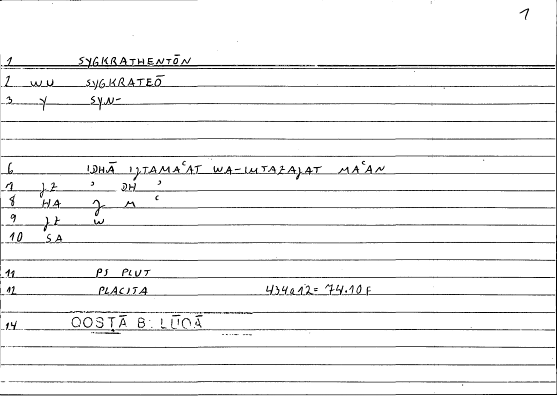 1
1 SYGKRATHENTŌN
2 WU SYGKRATEŌ
3 Y SYN-
6 IDHĀ IȷTAMAʿAT WA-IMTAZAȷAT MAʿAN
7 ȷZ ʾ DH ʾ
8 HA ȷ M ʿ
9 ȷZ W
10 SA
11 PS PLUT
12 PLACITA 434a12= 74.10F
14 QOSṬĀ B. LŪQĀ